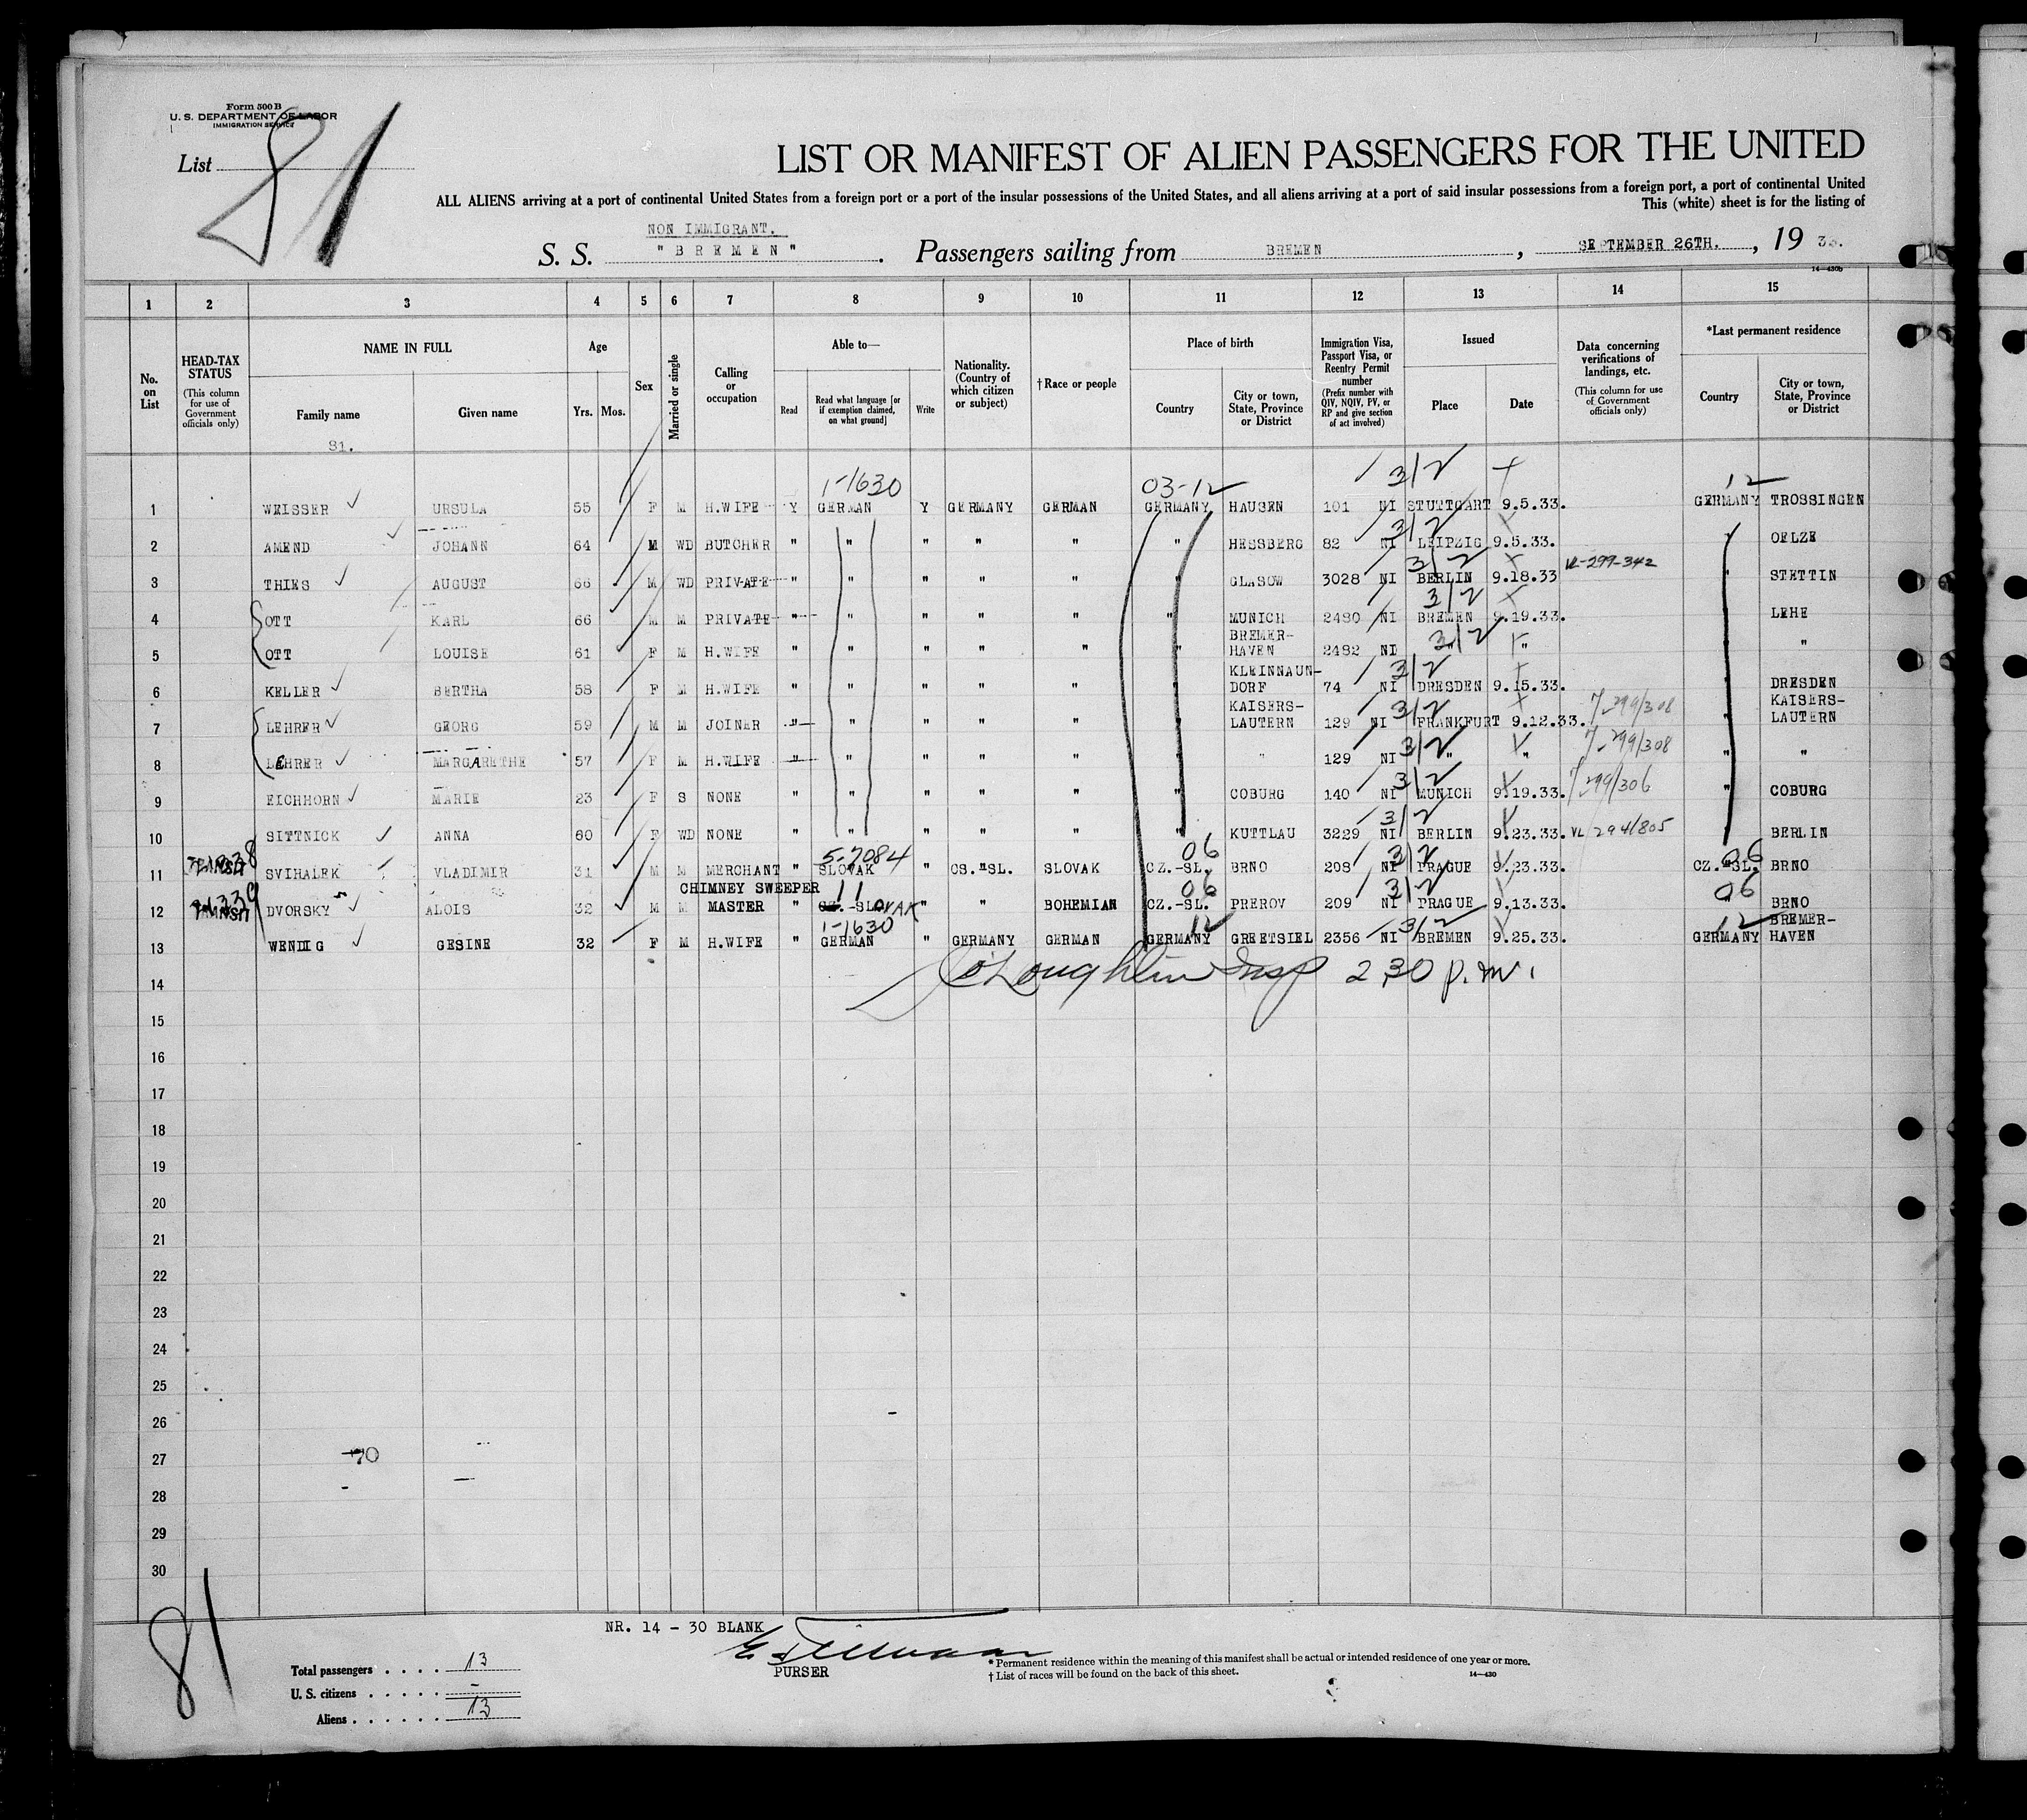 Form 500 B
U. S. DEPARTMENT OF LABOR
IMMIGRATION SERVICE
List 81
LIST OR MANIFEST OF ALIEN PASSENGERS FOR THE UNITED
ALL ALIENS arriving at a port of continental United States from a foreign port or a port of the insular possessions of the United States, and all aliens arriving at a port of said insular possessions from a foreign port, a port of continental United
This (white) sheet is for the listing of
NON IMMIGRANT.
S. S. "BREMEN". Passengers sailing from BREMEN, SEPTEMBER 26TH., 19 33.
14—430b
1 2 3 4 5 6 7 8 9 10 11 12 13 14 15
No. on List
HEAD-TAX STATUS (This column for use of Government officials only)
NAME IN FULL Family name Given name
Age Yrs. Mos.
Sex
Married or single
Calling or occupation
Able to— Read Read what language [or if exemption claimed, on what ground] Write
Nationality. (Country of which citizen or subject)
†Race or people
Place of birth Country City or town, State, Province or District
Immigration Visa, Passport Visa, or Reentry Permit number (Prefix number with QIV, NQIV, PV, or RP and give section of act involved)
Issued Place Date
Data concerning verifications of landings, etc. (This column for use of Government officials only)
*Last permanent residence Country City or town, State, Province or District
81.
1-1630 03-12 3/2 12
1 WEISSER URSULA 55 F M H.WIFE Y GERMAN Y GERMANY GERMAN GERMANY HAUSEN 101 NI STUTTGART 9.5.33. GERMANY TROSSINGEN
3/2
2 AMEND JOHANN 64 M WD BUTCHER " " " " " " HESSBERG 82 NI LEIPZIG 9.5.33. " OELZE
3/2 VL-299-342
3 THIES AUGUST 66 M WD PRIVATE " " " " " " GLASOW 3028 NI BERLIN 9.18.33 " STETTIN
3/2
4 OTT KARL 66 M M PRIVATE " " " " " " MUNICH 2480 NI BREMEN 9.19.33. " LEHE
3/2
5 OTT LOUISE 61 F M H.WIFE " " " " " " BREMER-HAVEN 2482 NI " " " "
3/2
6 KELLER BERTHA 58 F M H.WIFE " " " " " " KLEINNAUN-DORF 74 NI DRESDEN 9.15.33. " DRESDEN
3/2
7 LEHRER GEORG 59 M M JOINER " " " " " " KAISERS-LAUTERN 129 NI FRANKFURT 9.12.33. 299/308 " KAISERS-LAUTERN
3/2
8 LEHRER MARGARETHE 57 F M H.WIFE " " " " " " " 129 NI " " 299/308 " "
3/2
9 EICHHORN MARIE 23 F S NONE " " " " " " COBURG 140 NI MUNICH 9.19.33. 299/306 " COBURG
3/2
10 SITTNICK ANNA 60 F WD NONE " " " " " " KUTTLAU 3229 NI BERLIN 9.23.33. VL 294/805 " BERLIN
5-7084 06 3/2 06
11 TRANSIT SVIHALEK VLADIMIR 31 M M MERCHANT " SLOVAK " CS.-SL. SLOVAK CZ.-SL. BRNO 208 NI PRAGUE 9.23.33. CZ.-SL. BRNO
11 06 3/2 06
12 TRANSIT DVORSKY ALOIS 32 M M CHIMNEY SWEEPER MASTER " CZ.-SLOVAK " " BOHEMIAN CZ.-SL. PREROV 209 NI PRAGUE 9.13.33. BRNO
1-1630 12 3/2 12
13 WENDIG GESINE 32 F M H.WIFE " GERMAN " GERMANY GERMAN GERMANY GREETSIEL 2356 NI BREMEN 9.25.33. GERMANY BREMER-HAVEN
14 O'Loughlin Insp 2,30 p.m.
15
16
17
18
19
20
21
22
23
24
25
26
27 70
28
29
30
81
NR. 14 - 30 BLANK
PURSER
Total passengers . . . . 13
U. S. citizens . . . . . -
Aliens . . . . . . 13
* Permanent residence within the meaning of this manifest shall be actual or intended residence of one year or more.
† List of races will be found on the back of this sheet.
14—430